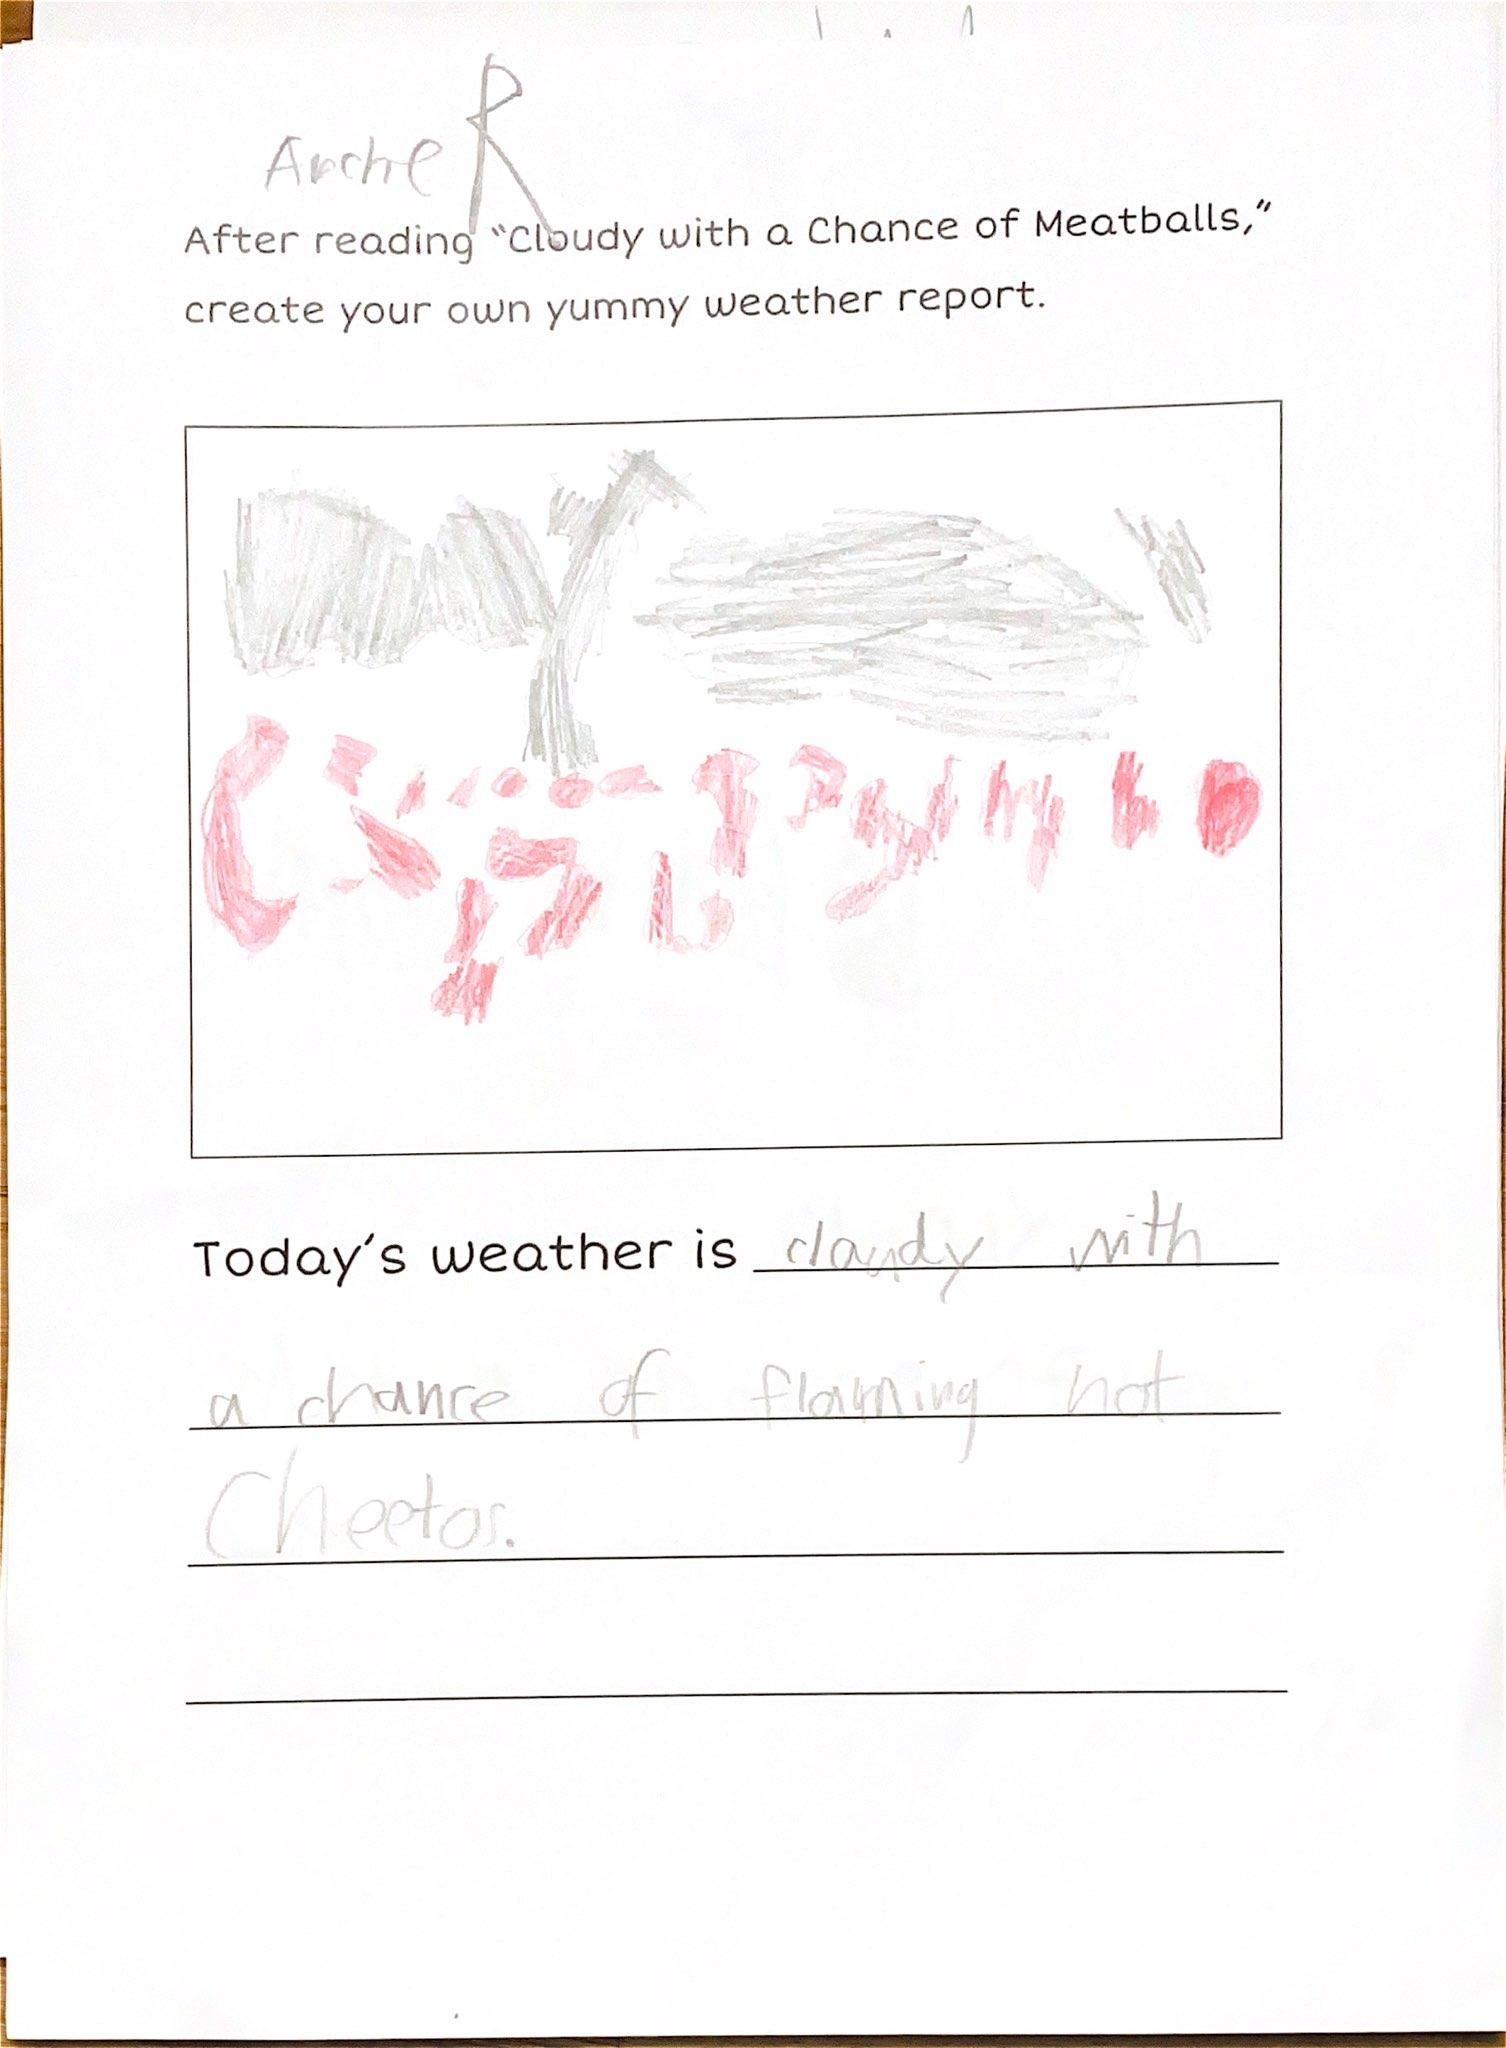 ArcheR
After reading “Cloudy with a Chance of Meatballs,”
create your own yummy weather report.
Today’s weather is cloudy with
a chance of flaming hot
Cheetos.